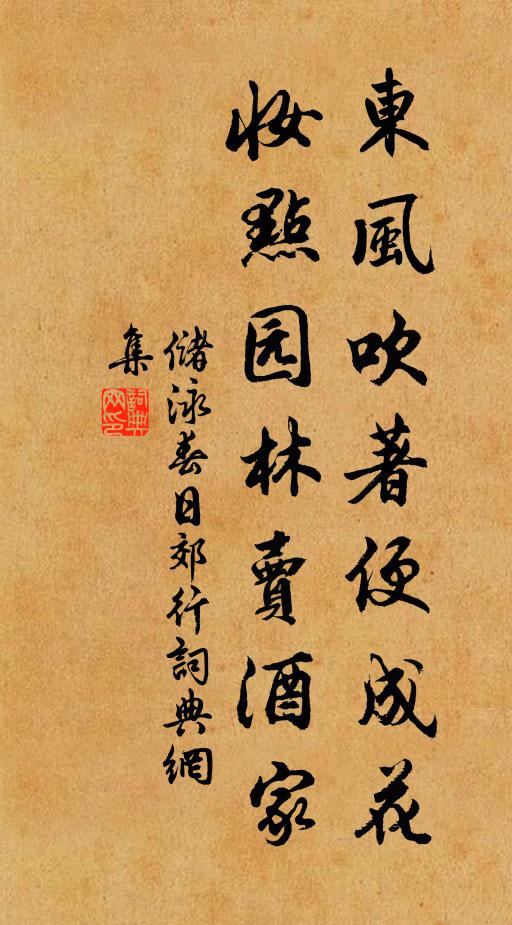 東風吹著便成花
妝點园林賣酒家
儲泳春日郊行詞典網
集
詞典
网印